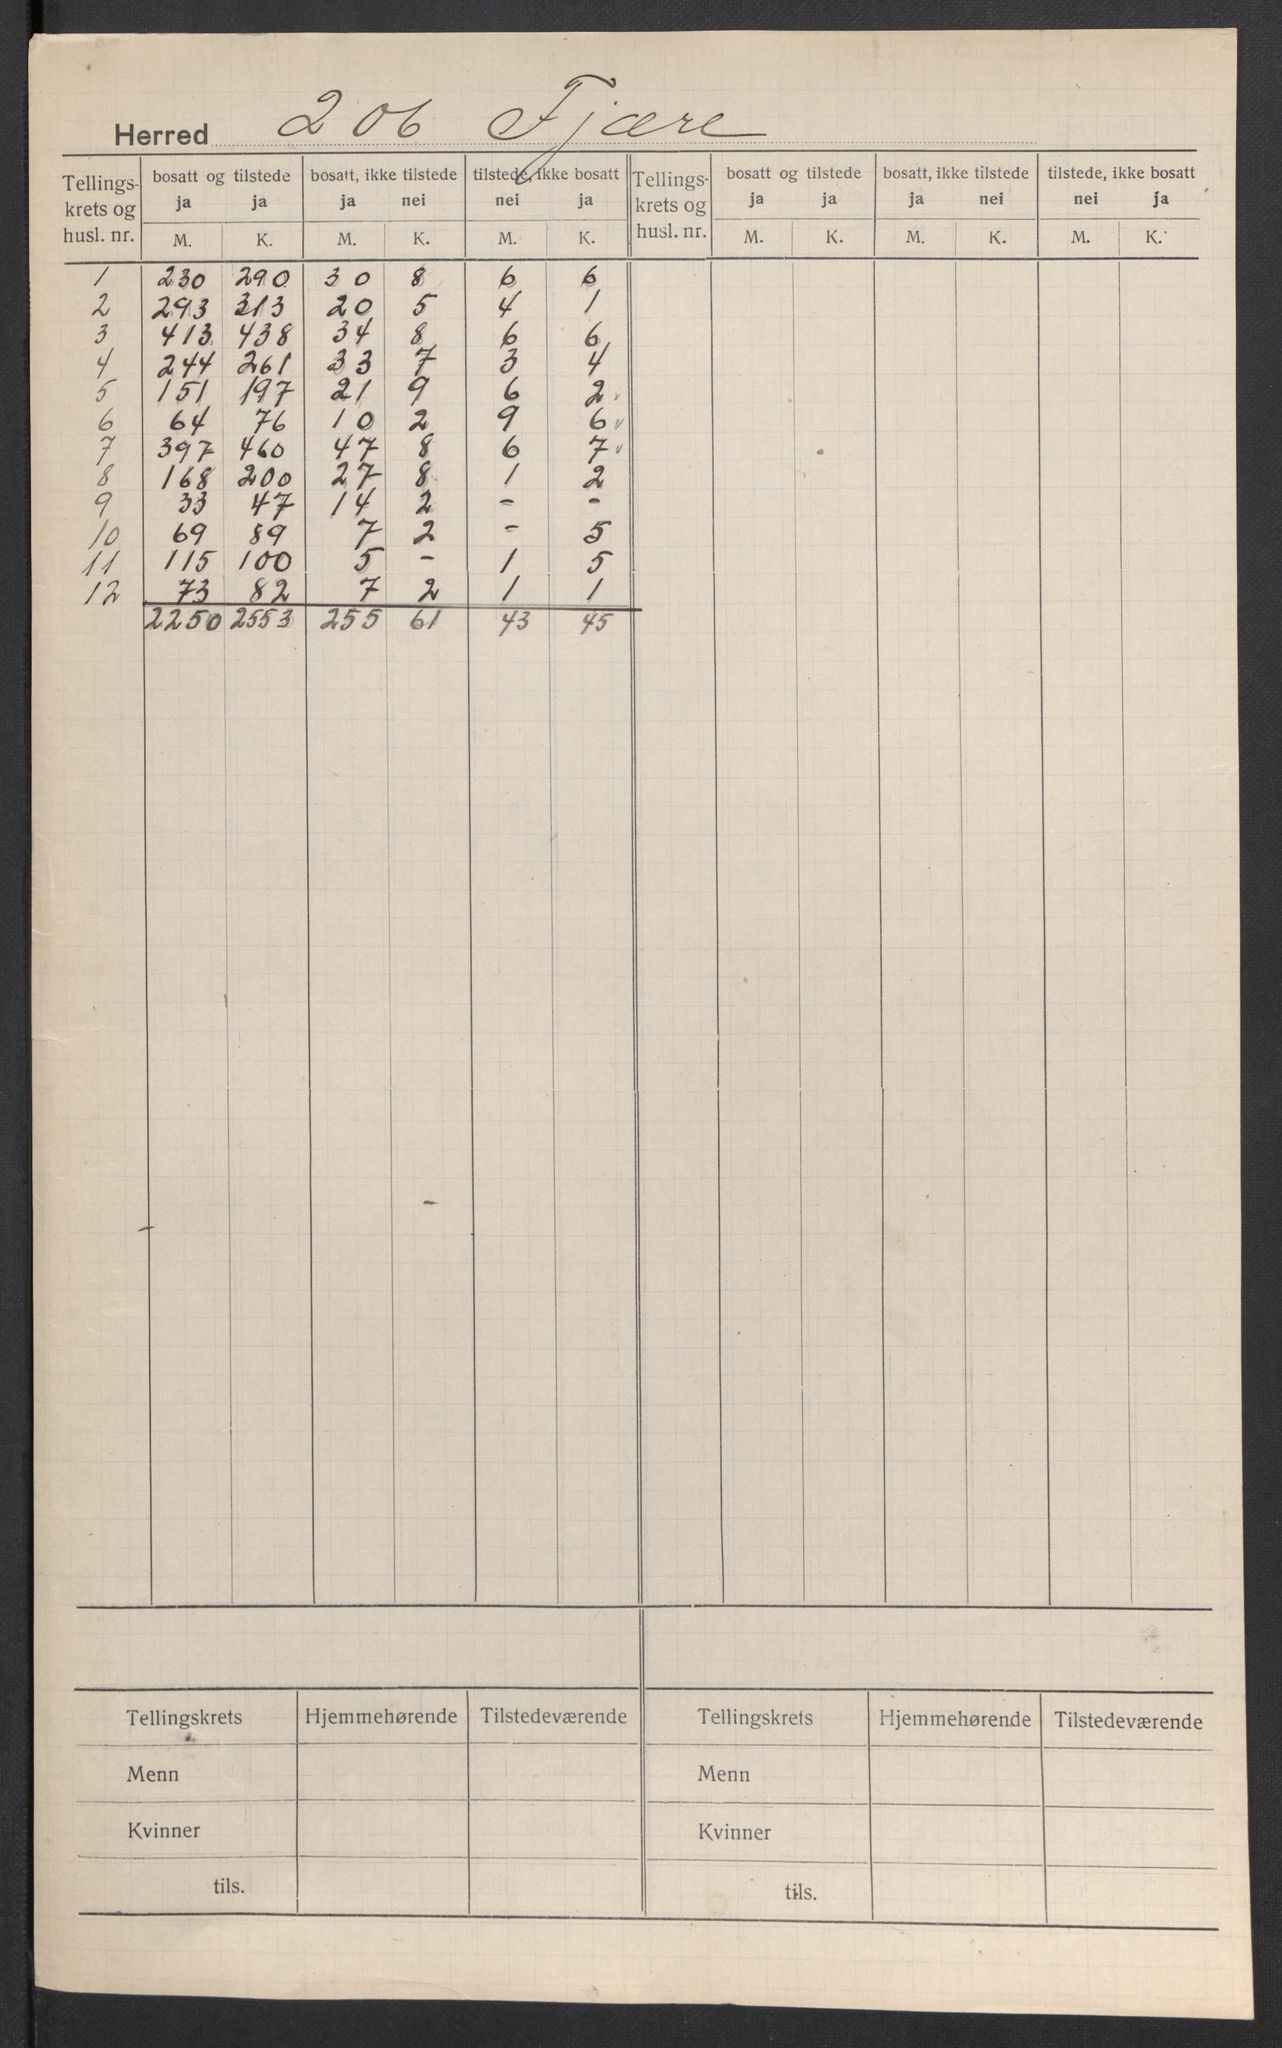 Herred 206 Fjære
bosatt og tilstede bosatt, ikke tilstede tilstede, ikke bosatt bosatt og tilstede bosatt, ikke tilstede tilstede, ikke bosatt
Tellings- Tellings-
ja ja ja nei nei ja ja ja ja nei nei ja
krets og krets og
husl. nr. M. K. M. K. M. K. husl. nr. M. K. M. K. M. K.
1 230 290 30 8 6 6
2 293 313 20 5 4 1
3 413 438 34 8 6 6
4 244 261 33 7 3 4
5 151 197 21 9 6 2
6 64 76 10 2 9 6
7 397 460 47 8 6 7
8 168 200 27 8 1 2
9 33 47 14 2 - -
10 69 89 7 2 - 5
11 115 100 5 - 1 5
12 73 82 7 2 1 1
2250 2553 255 61 43 45
Tellingskrets Hjemmehørende Tilstedeværende Tellingskrets Hjemmehørende Tilstedeværende
Menn Menn
Kvinner Kvinner
tils. tils.